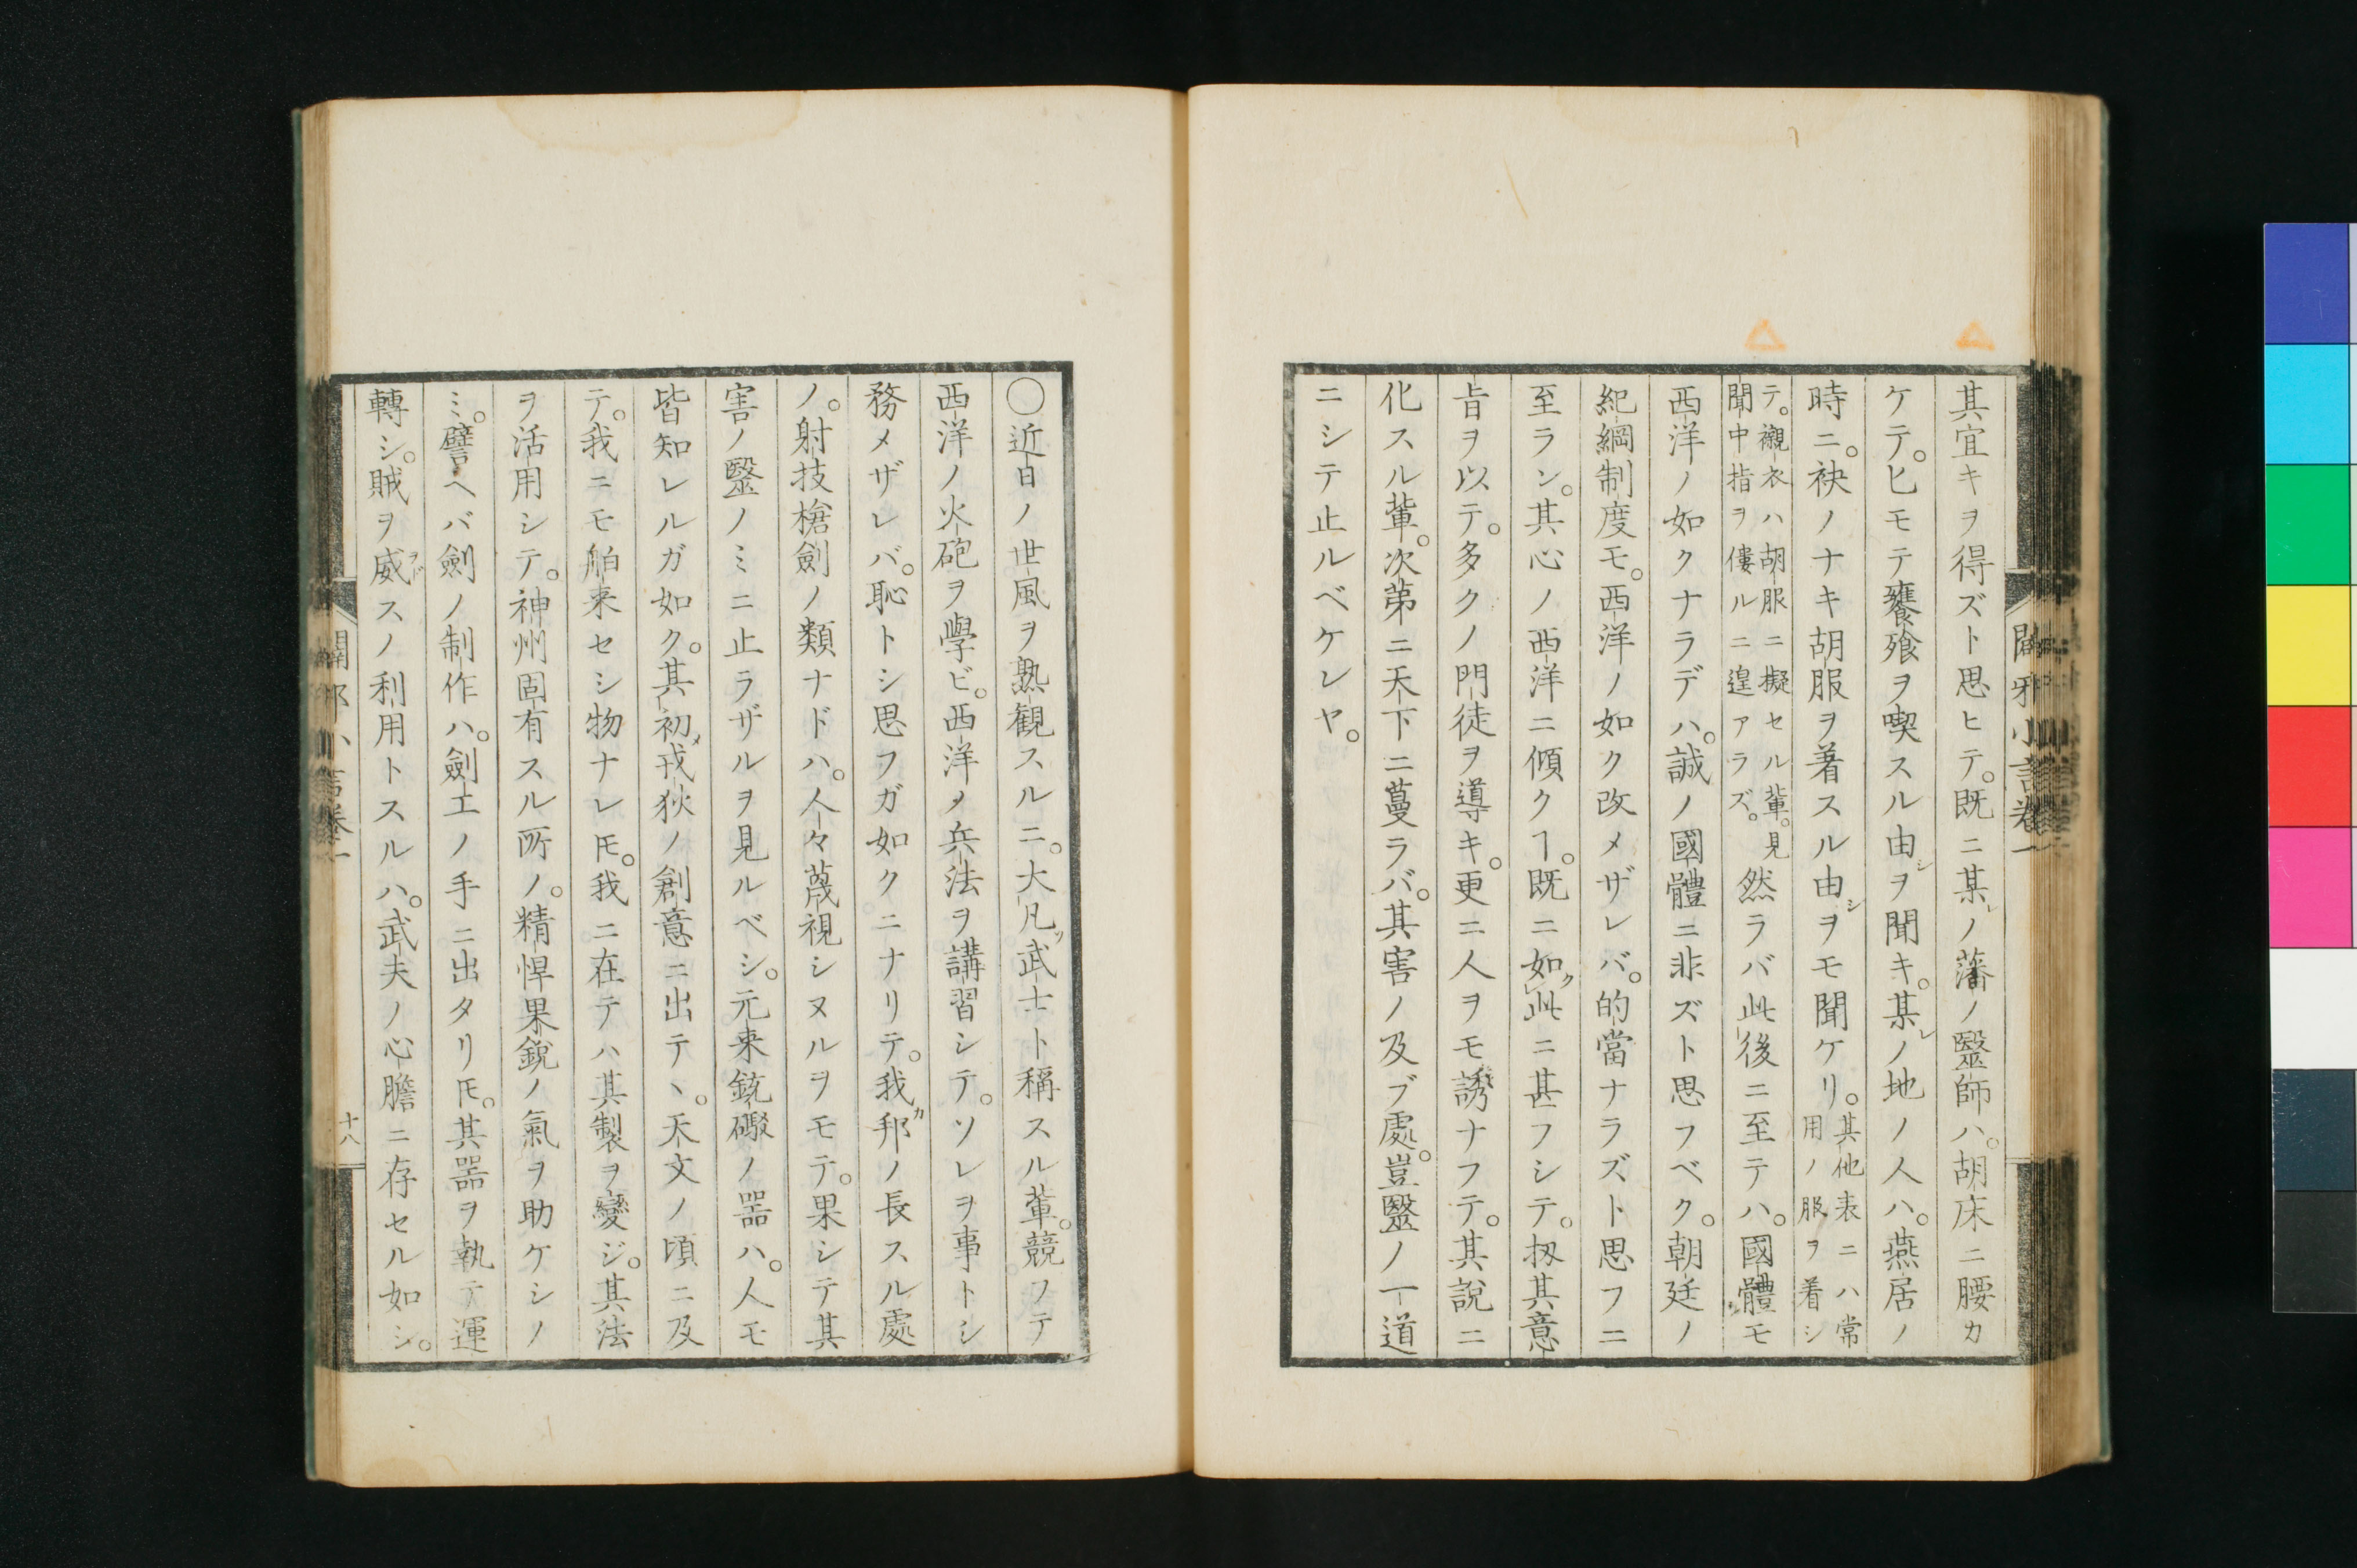 其宜キヲ得ズト思ヒテ。既ニ某レノ藩ノ毉師ハ。胡床ニ腰カ
ケテ。匕モテ饔飱ヲ喫スル由シヲ聞キ。某レノ地ノ人ハ。燕居ノ
時ニ。袂ノナキ胡服ヲ著スル由シヲモ聞ケリ。其他表ニハ常
用ノ服ヲ着シ
テ。襯衣ハ胡服ニ擬セル輩。見
聞中指ヲ僂ルニ遑アラズ。
然ラバ此後ニ至テハ。國體モ
西洋ノ如クナラデハ。誠ノ國體ニ非ズト思フベク。朝廷ノ
紀綱制度モ。西洋ノ如ク改メザレバ。的當ナラズト思フニ
至ラン。其心ノ西洋ニ傾クヿ。既ニ如ク此ニ甚フシテ。扨其意
旨ヲ以テ。多クノ門徒ヲ導キ。更ニ人ヲモ誘ナフテ。其說ニ
化スル輩。次第ニ天下ニ蔓ラバ。其害ノ及ブ處。豈毉ノ一道
ニシテ止ルベケレヤ。
闢邪小言卷一
〇近日ノ世風ヲ熟観スルニ。大凡ソ武士ト稱スル輩。競フテ
西洋ノ火砲ヲ學ビ。西洋ノ兵法ヲ講習シテ。ソレヲ事トシ
務メザレバ。恥トシ思フガ如クニナリテ。我カ邦ノ長スル處
ノ。射技槍劍ノ類ナドハ。人々蔑視シヌルヲモテ。果シテ其
害ノ毉ノミニ止ラザルヲ見ルベシ。元来銃礮ノ噐ハ。人モ
皆知レルガ如ク。其初メ戎狄ノ創意ニ出テヽ。天文ノ頃ニ及
テ。我ニモ舶来セシ物ナレ𪜈。我ニ在テハ其製ヲ變ジ。其法
ヲ活用シテ。神州固有スル所ノ。精悍果銳ノ氣ヲ助ケシノ
ミ。譬ヘバ劍ノ制作ハ。劍工ノ手ニ出タリ𪜈。其噐ヲ執テ運
轉シ。賊ヲ威ヲドスノ利用トスルハ。武夫ノ心膽ニ存セル如シ。
闢邪小言卷一
十八